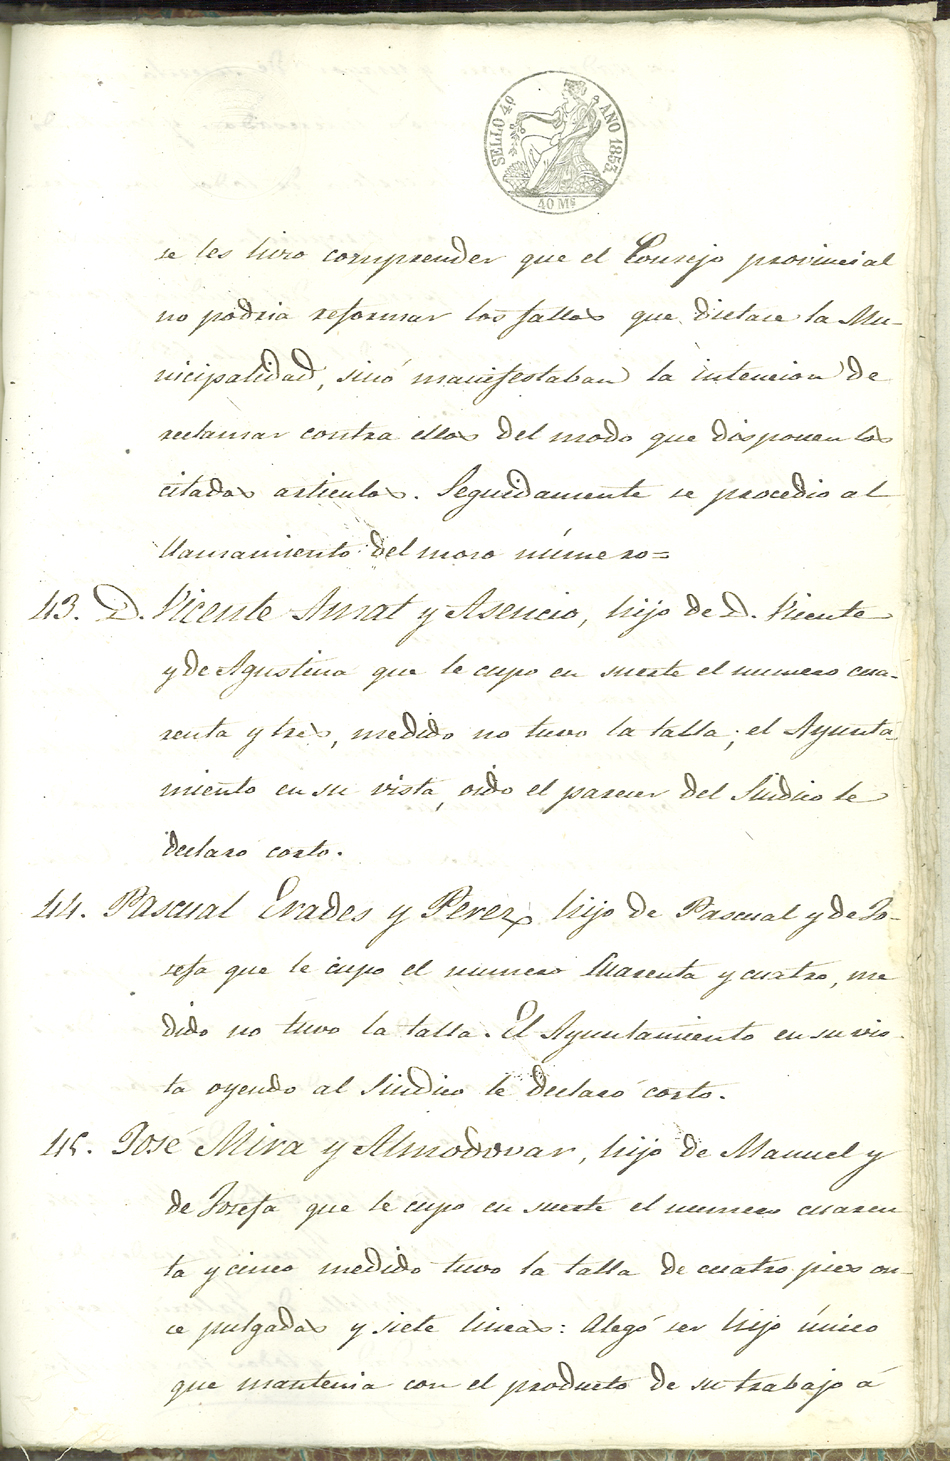 SELLO 4º AÑO 1853.
40 Ms
se les hizo comprender que el Consejo provincial
no podria reformar los fallos que dictare la Mu-
nicipalidad, sinó manifestaban la intencion de
reclamar contra ellos del modo que disponen los
citados articulos. Seguidamente se procedio al
llamamiento del mozo número =
43. D. Vicente Amat y Asencio, hijo de D. Vicente
y de Agustina que le cupo en suerte el numero cua-
renta y tres, medido no tuvo la talla; el Ayunta-
miento en su vista, oido el parecer del Sindico le
declaro corto.
44. Pascual Erades y Perez, hijo de Pascual y de Jo-
sefa que le cupo el numero Cuarenta y cuatro, me
dido no tuvo la talla. El Ayuntamiento en su vis-
ta oyendo al Sindico le declaró corto.
45. José Mira y Almodovar, hijo de Manuel y
de Josefa que le cupo en suerte el numero cuaren
ta y cinco medido tuvo la talla de cuatro pies on-
ce pulgadas y siete lineas: Alegó ser hijo único
que mantenia con el producto de su trabajo á